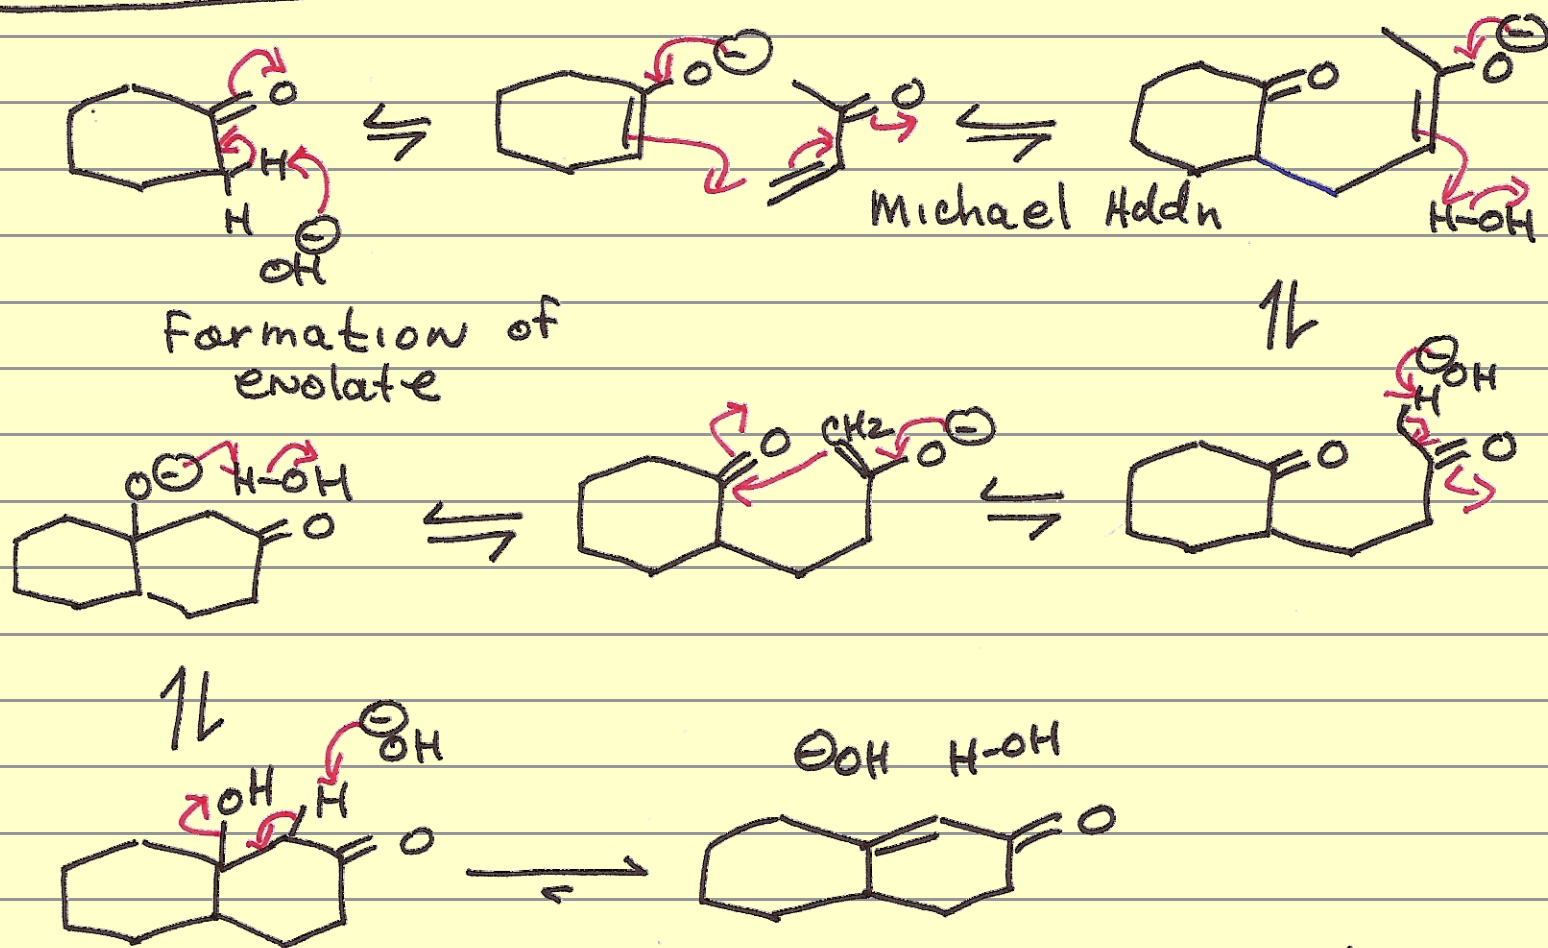 O
H
H
⊖
OH
O ⊖
O
O
O ⊖
H-OH
Michael Addn
Formation of
enolate
⊖
OH
H
O
O
CH2
O ⊖
O
O ⊖ H-OH
O
⊖
OH
OH
H
O
⊖OH H-OH
O